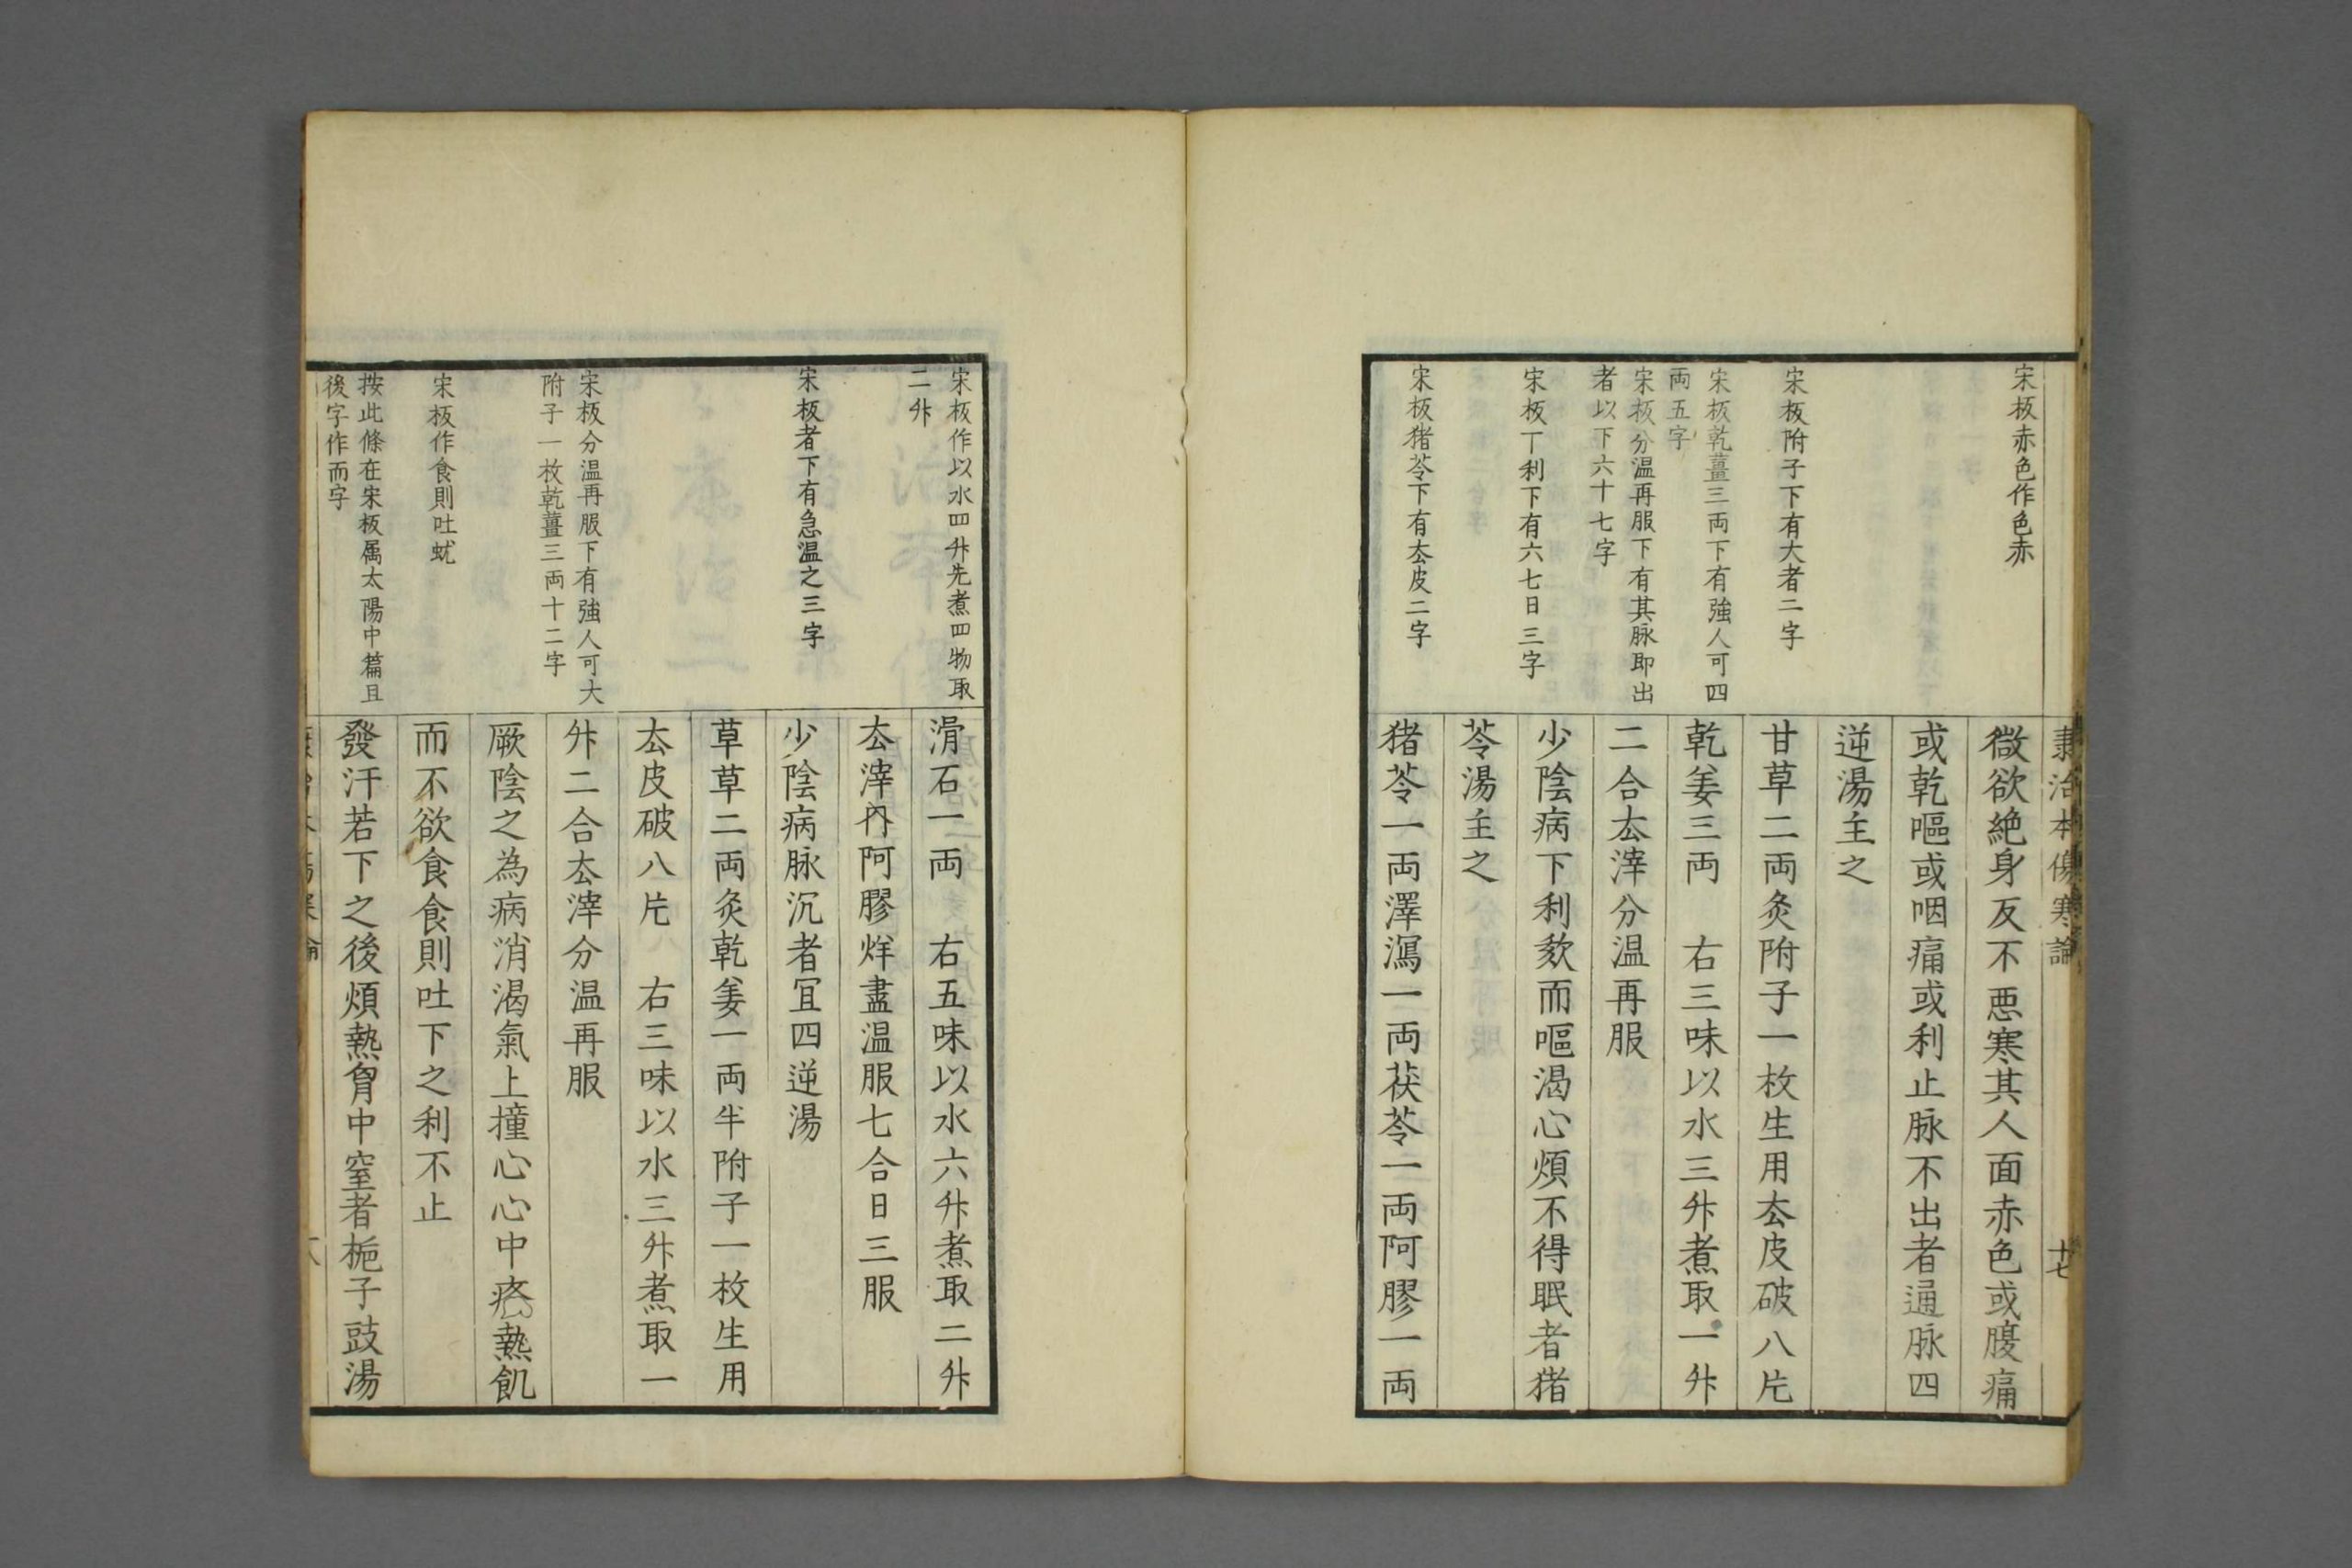 宋板赤色作色赤
宋板附子下有大者二字
宋板乾薑三両下有強人可四
両五字
宋板分温再服下有其脉即出
者以下六十七字
宋板丅利下有六七日三字
宋板猪苓下有厺皮二字
康治本傷寒論
十七
微欲絶身反不悪寒其人面赤色或腹痛
或乾嘔或咽痛或利止脉不出者通脉四
逆湯主之
甘草二両灸附子一枚生用厺皮破八片
乾姜三両 右三味以水三升煮取一升
二合厺滓分温再服
少陰病下利欬而嘔渴心煩不得眠者猪
苓湯主之
猪苓一両澤瀉一両茯苓一両阿膠一両
宋板作以水四升先煮四物取
二升
宋板者下有急温之三字
宋板分温再服下有強人可大
附子一枚乾薑三両十二字
宋板作食則吐蚘
按此條在宋板属太陽中篇且
後字作而字
滑石一両 右五味以水六升煮取二升
厺滓内阿膠烊盡温服七合日三服
少陰病脉沉者冝四逆湯
草草二両灸乾姜一両半附子一枚生用
厺皮破八片 右三味以水三升煮取一
升二合厺滓分温再服
厥陰之為病消渴氣上撞心心中疼熱飢
而不欲食食則吐下之利不止
發汗若下之後煩熱胷中窒者梔子豉湯